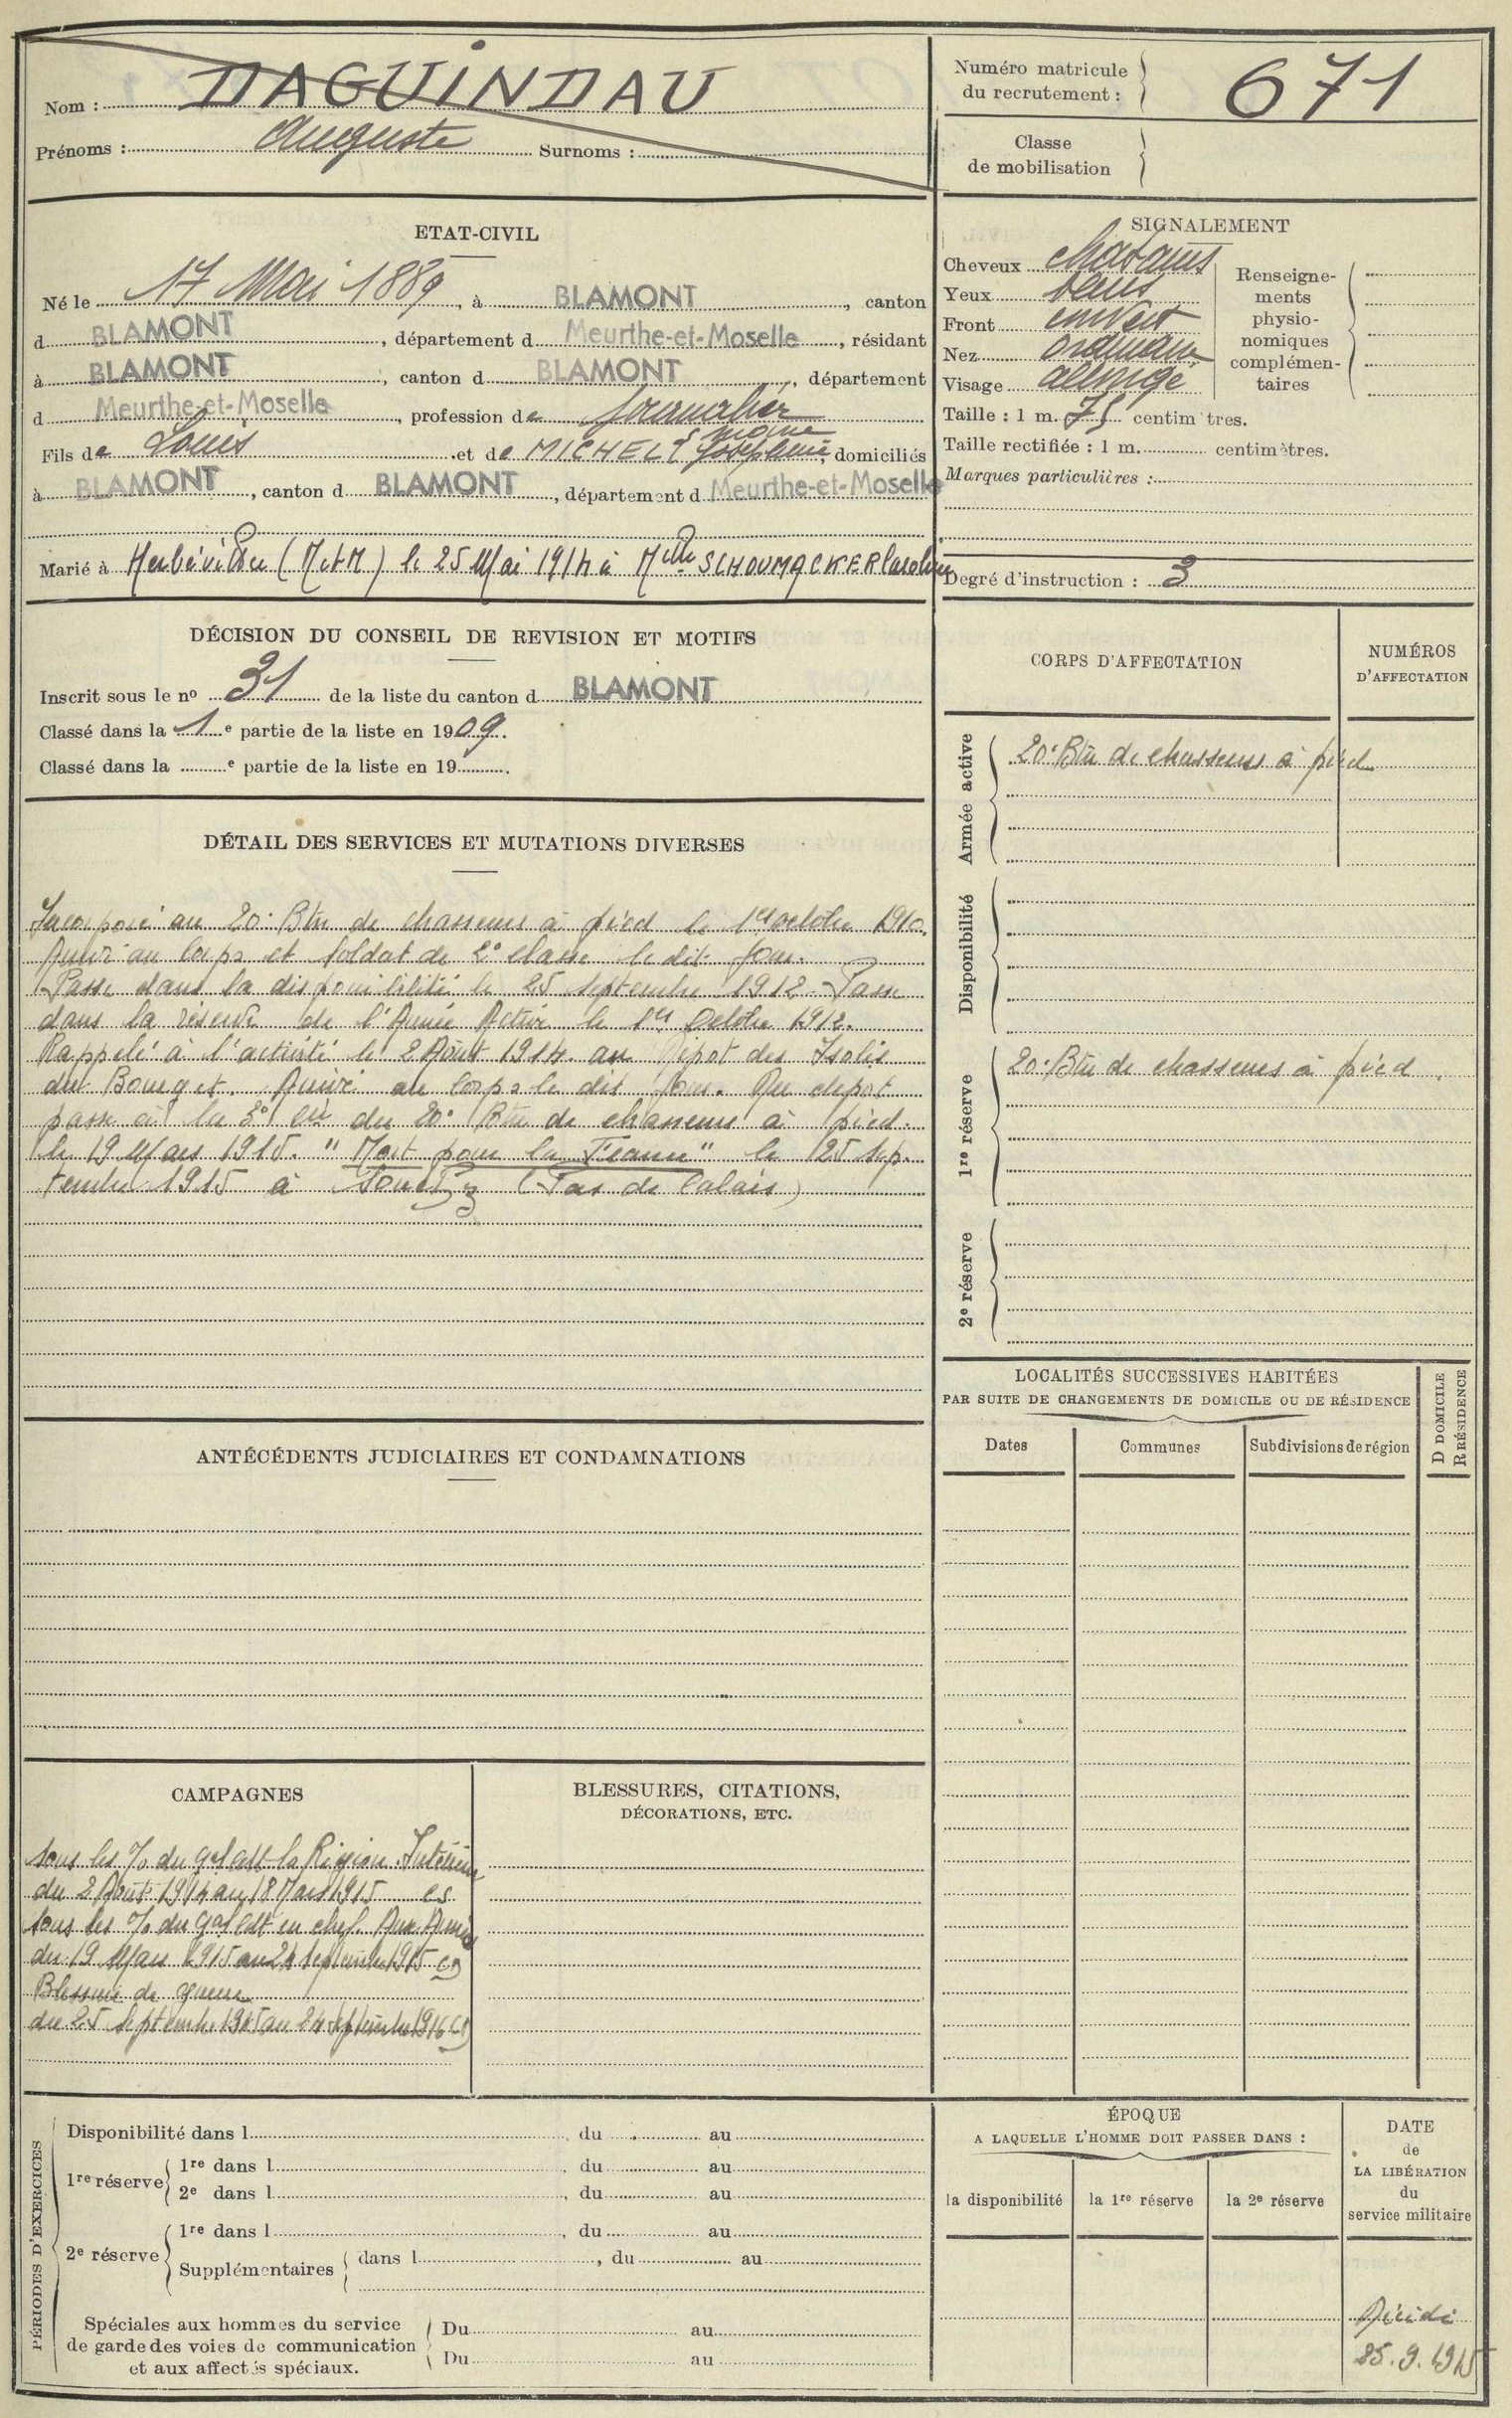 Nom : DAGUINDAU
Prénoms : Auguste Surnoms :
Numéro matricule
du recrutement : 671
Classe
de mobilisation
ETAT-CIVIL
Né le 17 Mai 1889, à BLAMONT, canton
d BLAMONT, département d Meurthe-et-Moselle, résidant
à BLAMONT, canton d BLAMONT, département
d Meurthe-et-Moselle, profession de journalier
Fils de Louis et de MICHEL Joséphine, domiciliés
à BLAMONT, canton d BLAMONT, département d Meurthe-et-Moselle
Marié à Herbéviller (M et M) le 25 Mai 1914 à Mlle SCHOUMACKER
SIGNALEMENT
Cheveux chatains
Yeux
Front
Nez ordinaire
Visage allongé
Renseigne-
ments
physio-
nomiques
complémen-
taires
Taille : 1 m. 75 centim tres.
Taille rectifiée : 1 m. centimètres.
Marques particulières :
Degré d'instruction : 3
DÉCISION DU CONSEIL DE REVISION ET MOTIFS
Inscrit sous le no 31 de la liste du canton d BLAMONT
Classé dans la 1e partie de la liste en 1909.
Classé dans la e partie de la liste en 19 .
CORPS D'AFFECTATION
NUMÉROS
D'AFFECTATION
Armée active
20e Bon de chasseurs à pied
Disponibilité
1re réserve
20e Bon de chasseurs à pied
2e réserve
DÉTAIL DES SERVICES ET MUTATIONS DIVERSES
Incorporé au 20e Bon de chasseurs à pied le 1er octobre 1910.
Arrivé au corps et soldat de 2e classe le dit jour.
Passé dans la disponibilité le 25 septembre 1912. Passé
dans la réserve de l'Armée Active le 1er Octobre 1912.
Rappelé à l'activité le 2 Août 1914 au Dépot des Isolés
du Bourget. Arrivé au corps le dit jour. Du dépot
passé à la 3e Cie du 20e Bon de chasseurs à pied
le 19 Mars 1915. "Mort pour la France" le 25 sep-
tembre 1915 à Souchez (Pas de Calais)
LOCALITÉS SUCCESSIVES HABITÉES
PAR SUITE DE CHANGEMENTS DE DOMICILE OU DE RÉSIDENCE
Dates
Communes
Subdivisions de région
D DOMICILE
R RÉSIDENCE
ANTÉCÉDENTS JUDICIAIRES ET CONDAMNATIONS
CAMPAGNES
Sous les %o du gal Ct la Région. Intérieur
du 2 Août 1914 au 18 Mars 1915 cs
Sous les %o du gal Ct en chef. Aux Armées
du 19 Mars 1915 au 24 septembre 1915 CD
Blessure de guerre
du 25 septembre 1915 au 24 septembre 1916 CD
BLESSURES, CITATIONS,
DÉCORATIONS, ETC.
PÉRIODES D'EXERCICES
Disponibilité dans l , du au
1re réserve
1re dans l , du au
2e dans l , du au
2e réserve
1re dans l , du au
Supplémentaires dans l , du au
Spéciales aux hommes du service
de garde des voies de communication
et aux affectés spéciaux.
Du au
Du au
ÉPOQUE
A LAQUELLE L'HOMME DOIT PASSER DANS :
la disponibilité
la 1re réserve
la 2e réserve
DATE
de
LA LIBÉRATION
du
service militaire
Décédé
25.9.1915